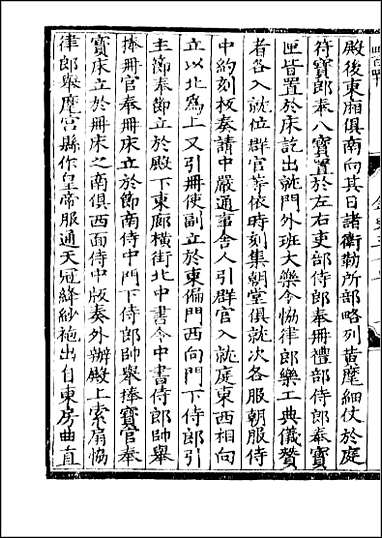 殿後東廂俱南向其日諸衛勒所部略列黃麾細仗於庭
符寶郎奉八寶置於左右吏部侍郎奉冊禮部侍郎奉寶
匣皆置於床訖出就門外班大樂令恊律郎樂工典儀贊
者各入就位群官等依時刻集朝堂俱就次各服朝服侍
中約刻板奏請中嚴通事舍人引群官入就庭東西相向
立以北為上又引冊使副立於東偏門西向門下侍郎引
主節奉節立於殿下東廊橫街北中書令中書侍郎帥舉
捧冊官奉冊床立於節南侍中門下侍郎帥舉捧寶官奉
寶床立於冊床之南俱西面侍中版奏外辦殿上索扇恊
律郎舉麾宮縣作皇帝服通天冠絳紗袍出自東房曲直